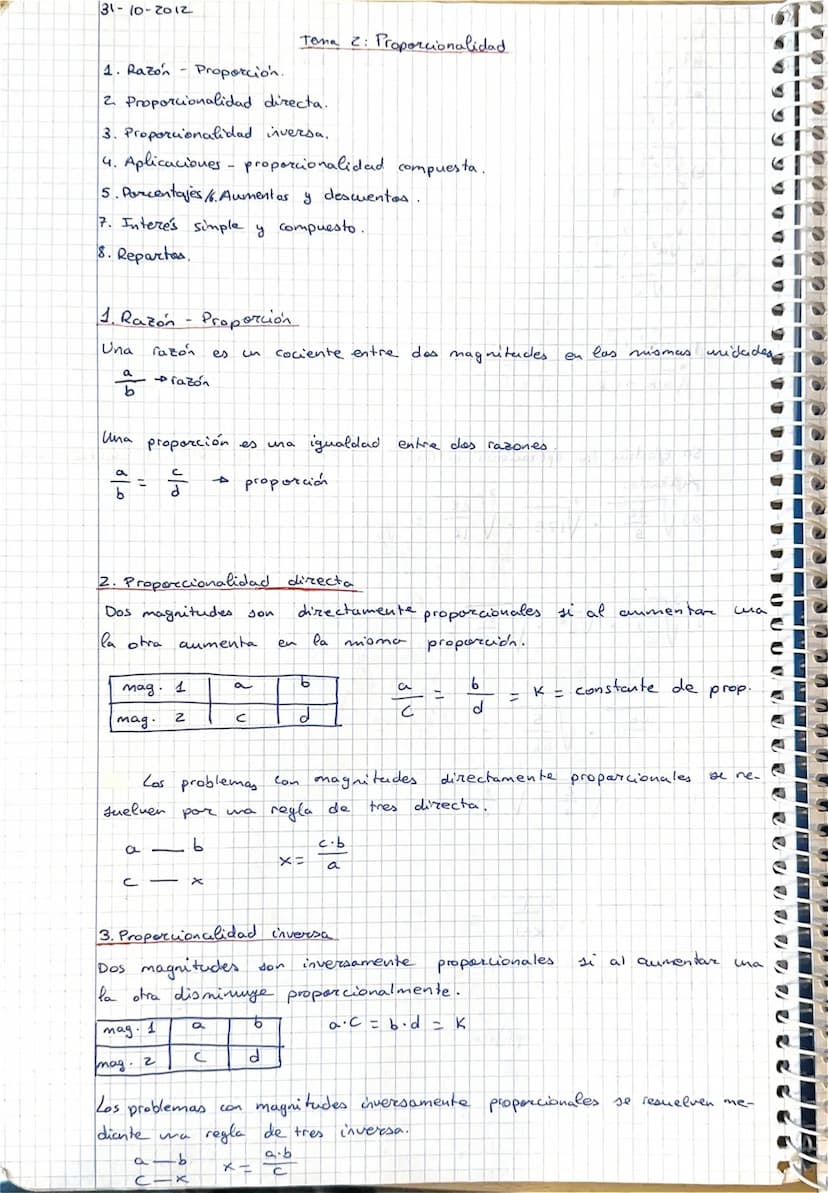 31-10-2012
Tema 2: Proporcionalidad
1. Razón - Proporción.
2. Proporcionalidad directa.
3. Proporcionalidad inversa.
4. Aplicaciones - proporcionalidad compuesta.
5. Porcentajes/6. Aumentos y descuentos.
7. Interés simple y compuesto.
8. Repartos.
1. Razón - Proporción
Una razón es un cociente entre dos magnitudes en las mismas unidades
a/b → razón
Una proporción es una igualdad entre dos razones.
a/b = c/d → proporción
2. Proporcionalidad directa
Dos magnitudes son directamente proporcionales si al aumentar una
la otra aumenta en la misma proporción.
mag. 1 a b
mag. 2 c d
a/c = b/d = K = constante de prop.
Los problemas con magnitudes directamente proporcionales se re-
suelven por una regla de tres directa.
a — b
c — x
x = c·b/a
3. Proporcionalidad inversa
Dos magnitudes son inversamente proporcionales si al aumentar una
la otra disminuye proporcionalmente.
mag. 1 a b
mag. 2 c d
a·c = b·d = K
Los problemas con magnitudes inversamente proporcionales se resuelven me-
diante una regla de tres inversa.
a — b
c — x
x = a·b/c